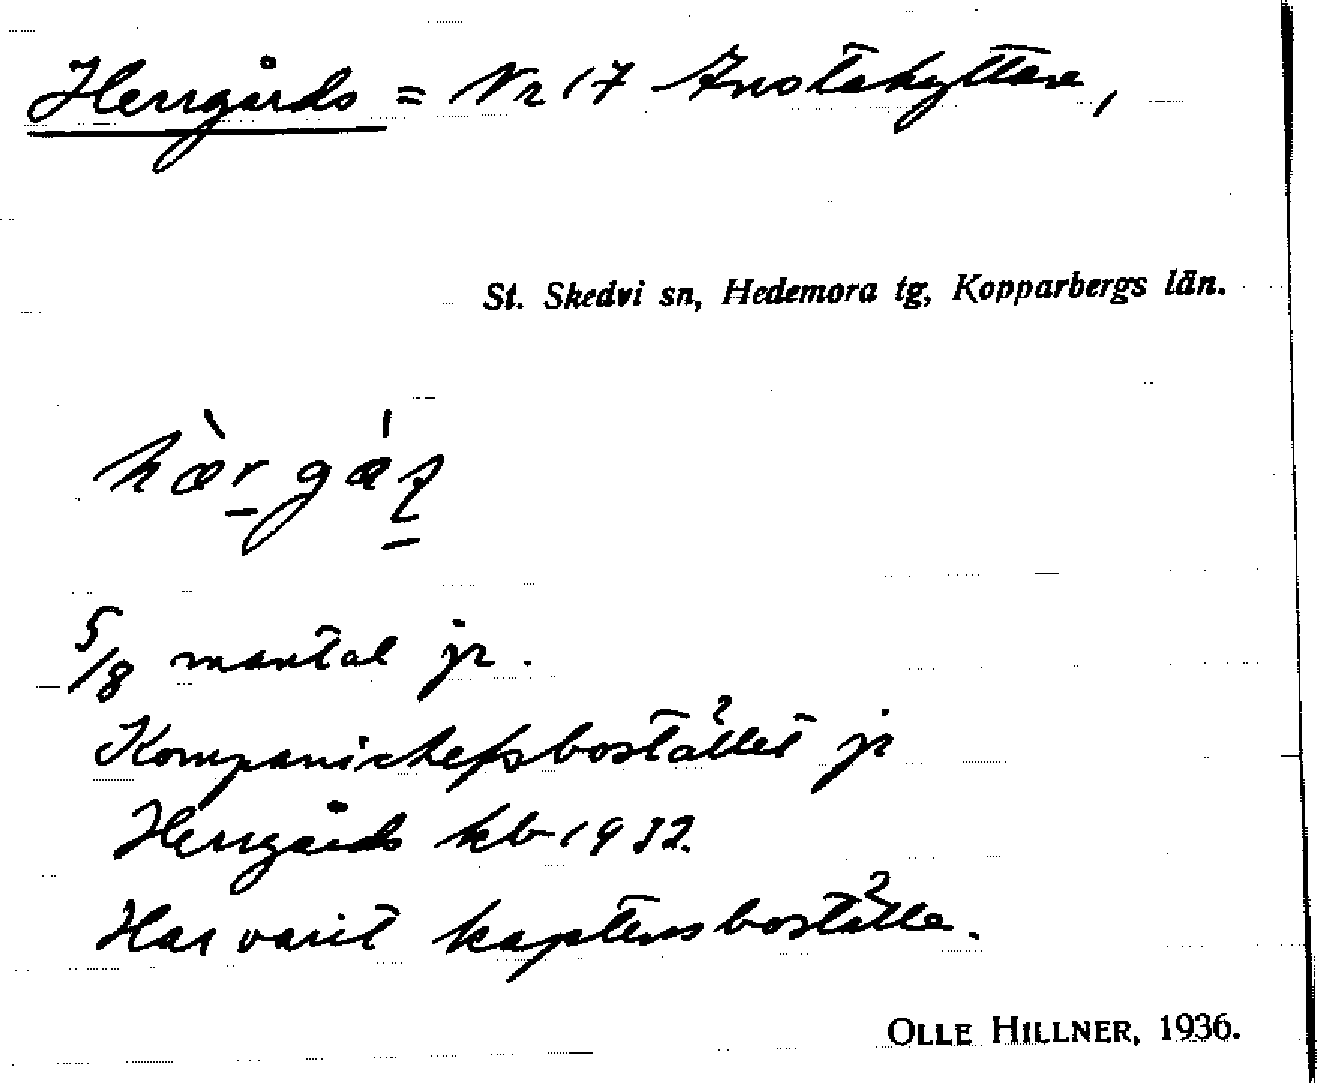 Herrgårds = Nr 17 Knutshyttan,
St. Skedvi sn, Hedemora tg, Kopparbergs län.
5/8 mantal jr.
Kompanichefsbostället jr
Herrgårds kb 1932.
Har varit kaptensboställe.
OLLE HILLNER, 1936.